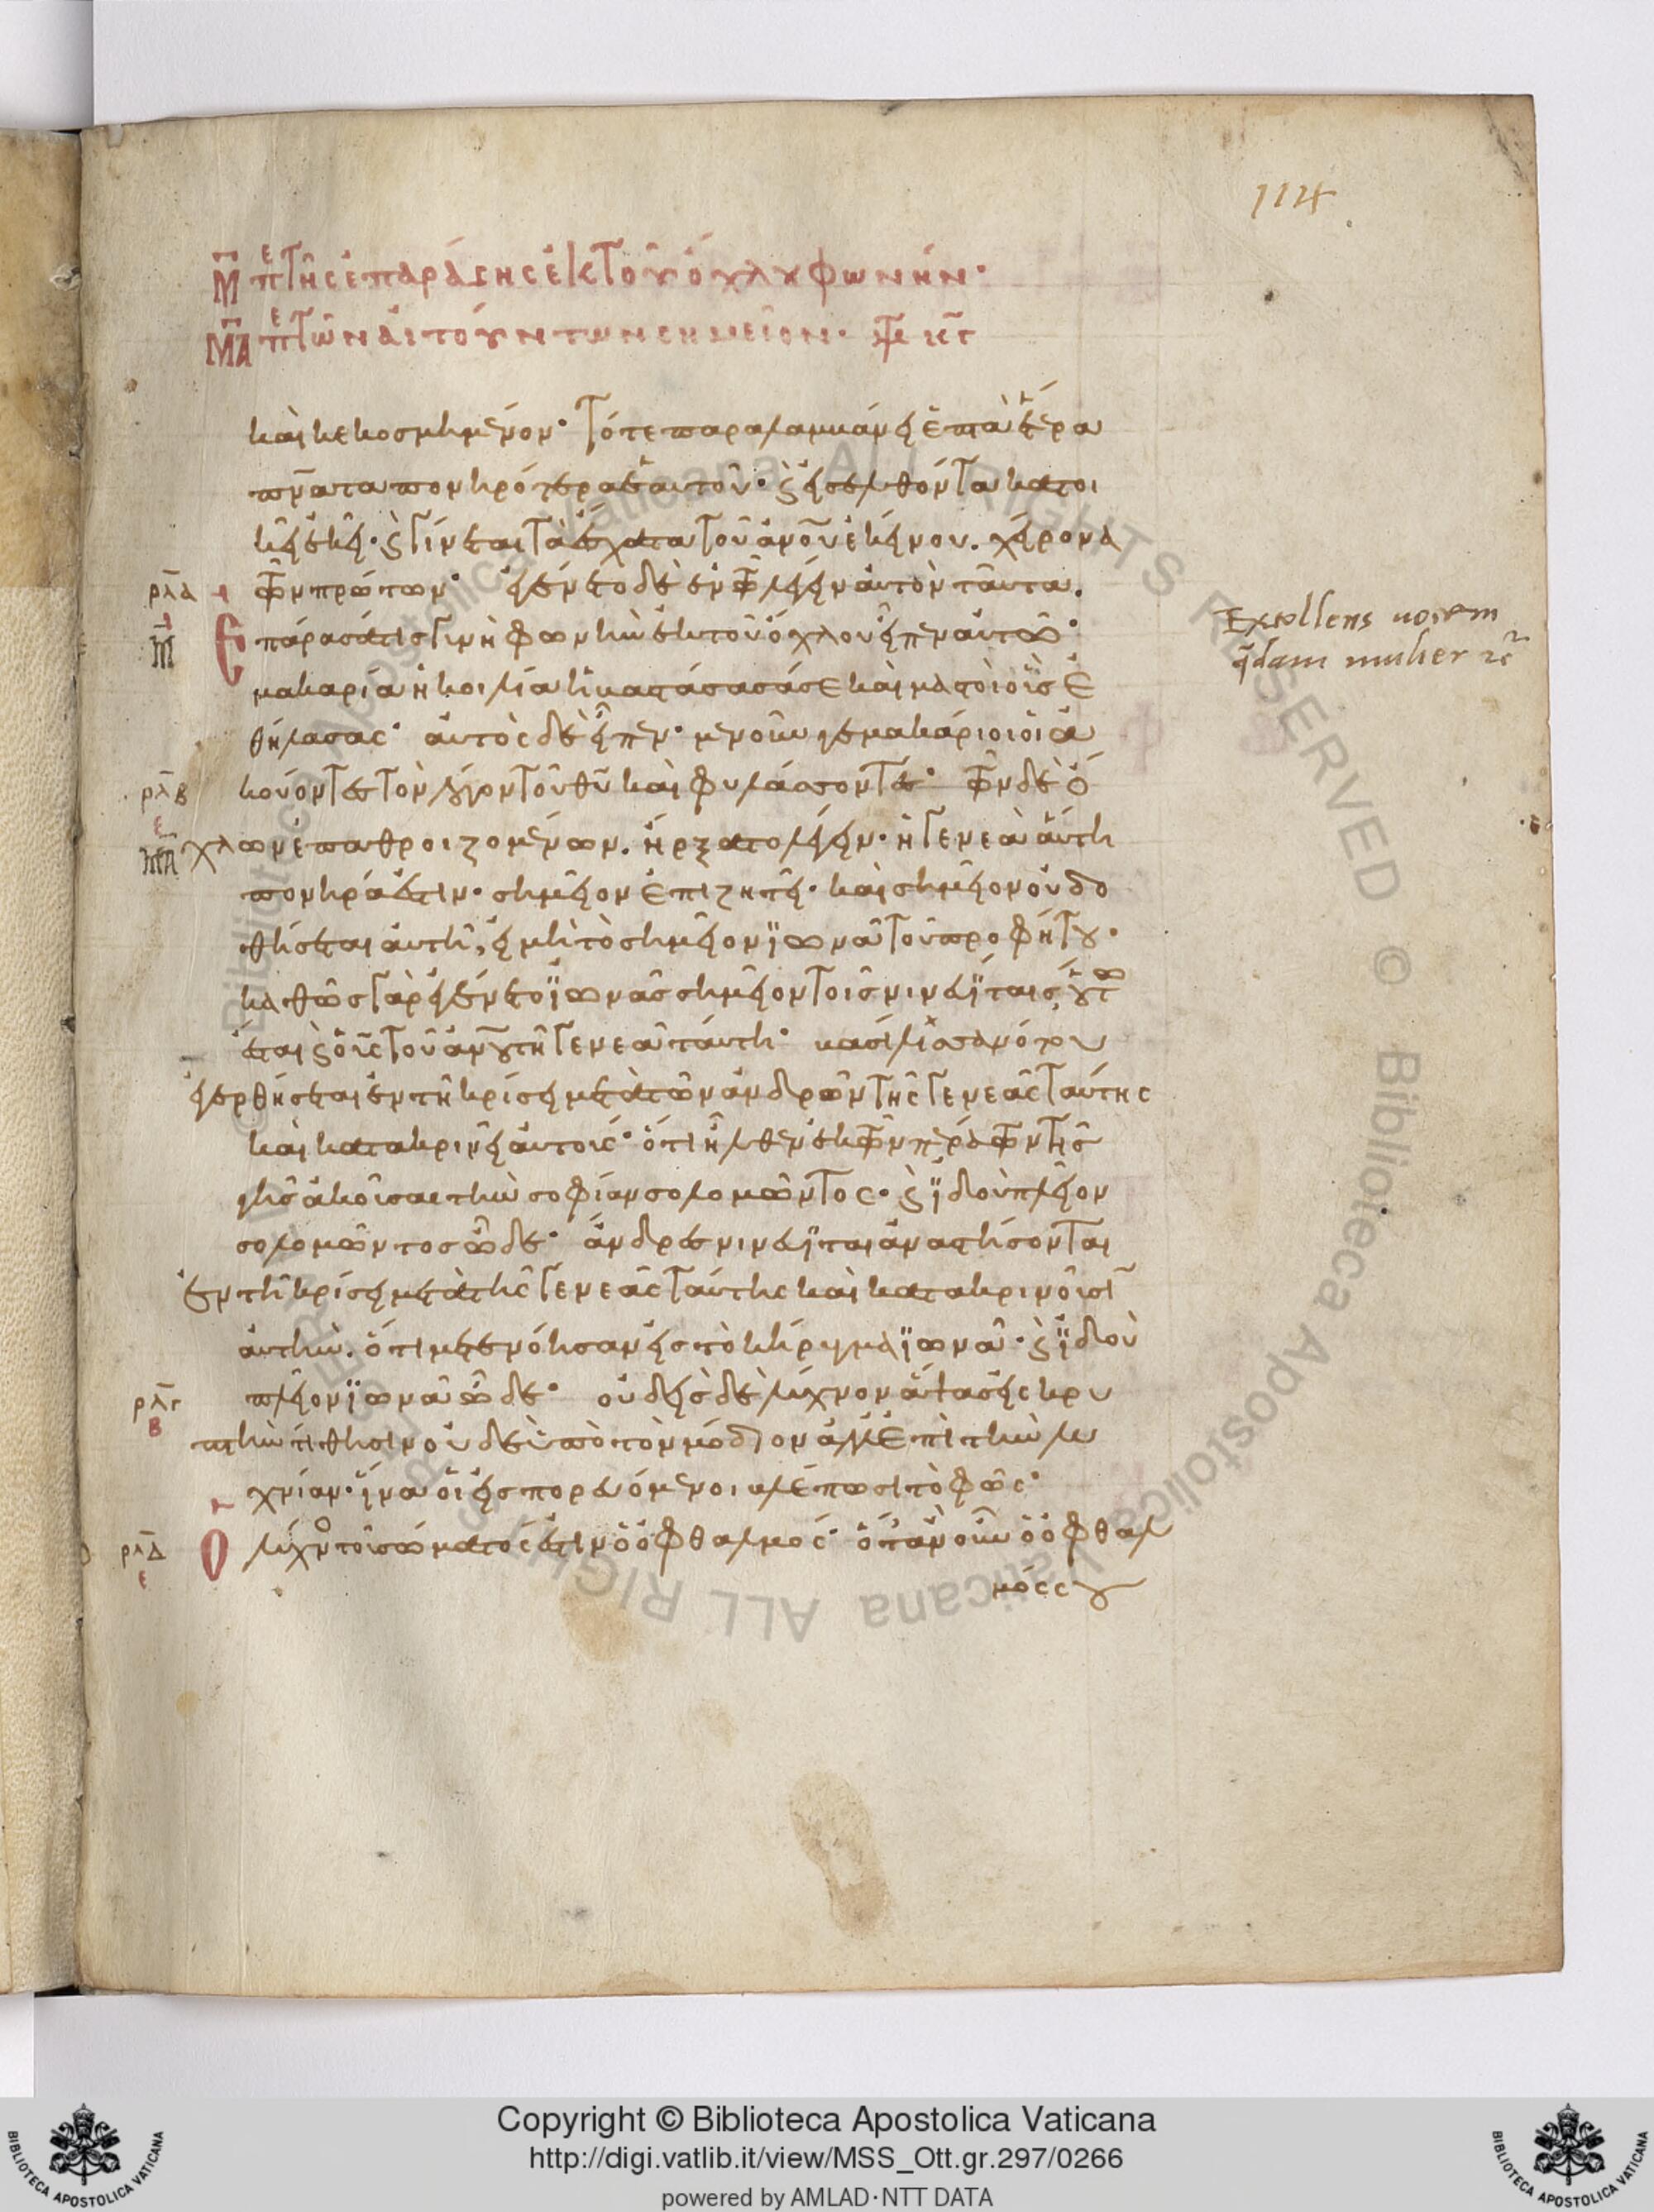 114
Μ̅ πε τῆς ἐπαράσης ἐκ τοῦ ὄχλου φωνήν·
Μ̅Α̅ πε τῶν αἰτούντων σημεῖον·
καὶ κεκοσμημένον· τότε παραλαμβάνει ἑπτὰ ἕτερα
πν̅ατα πονηρότερα ἑαυτοῦ· ϗ εἰσελθόντα κατοι
κεῖ ἐκεῖ· ϗ γίνεται τὰ ἔσχατα τοῦ ἀνο̅υ ἐκείνου. χείρονα
ρλα τῶν πρώτων· ἐγένετο δὲ ἐν τῶ λέγειν αὐτὸν ταῦτα.
Μ̅ Ἐπάρασά τις γυνὴ φωνὴν ἐκ τοῦ ὄχλου εἶπεν αὐτῶ·
Extollens vocem
μακαρία ἡ κοιλία ἡ βαστάσασά σε καὶ μαστοὶ οἳς ἐ
q̅dam mulier ⁊c̃
θήλασας· αὐτὸς δὲ εἶπεν· μενοῦν γε μακάριοι οἱ ἀ
ρλβ κούοντες τὸν λόγον τοῦ θυ̅ καὶ φυλάσσοντες· τῶν δὲ ὄ
ΜΑ̅ χλων ἐπαθροιζομένων. ἤρξατο λέγειν· ἡ γενεὰ αὕτη
πονηρά ἐστιν· σημεῖον ἐπιζητεῖ· καὶ σημεῖον οὐ δο
θήσεται αὐτῆ, εἰ μὴ τὸ σημεῖον ϊωνᾶ τοῦ προφήτου·
καθὼς γὰρ ἐγένετο ϊωνᾶς σημεῖον τοῖς νινευΐταις, οὕτω
ἔσται ϗ ὁ υἱς τοῦ ἀνο̅υ τῆ γενεᾶ ταύτη· βασίλισσα νότου
ἐγερθήσεται ἐν τῆ κρίσει μετὰ τῶν ἀνδρῶν τῆς γενεᾶς ταύτης
καὶ κατακρινεῖ αὐτούς· ὅτι ἦλθεν ἐκ τῶν περάτων τῆς
γῆς ἀκοῦσαι τὴν σοφίαν σολομῶντος· ϗ ϊδοὺ πλεῖον
σολομῶντος ὧδε· ἄνδρες νινευΐται ἀναστήσονται
ἐν τῆ κρίσει μετὰ τῆς γενεᾶς ταύτης καὶ κατακρινοῦσι
αὐτήν. ὅτι μετενόησαν εἰς τὸ κήρυγμα ϊωνᾶ· ϗ ϊδοὺ
ρλγ β πλεῖον ϊωνᾶ ὧδε· οὐδεὶς δὲ λύχνον ἅψας εἰς κρυ
πτὴν τίθησιν οὐδὲ ὑπὸ τὸν μόδιον ἀλλ' ἐπὶ τὴν λυ
χνίαν· ἵνα οἱ εἰσπορευόμενοι βλέπωσι τὸ φῶς·
ρλδ ε Ὁ λύχνος τοῦ σώματός ἐστιν ὁ ὀφθαλμός· ὅταν οὖν ὁ ὀφθαλ
μός σου
Copyright © Biblioteca Apostolica Vaticana
http://digi.vatlib.it/view/MSS_Ott.gr.297/0266
powered by AMLAD·NTT DATA
BIBLIOTECA APOSTOLICA VATICANA
BIBLIOTECA APOSTOLICA VATICANA